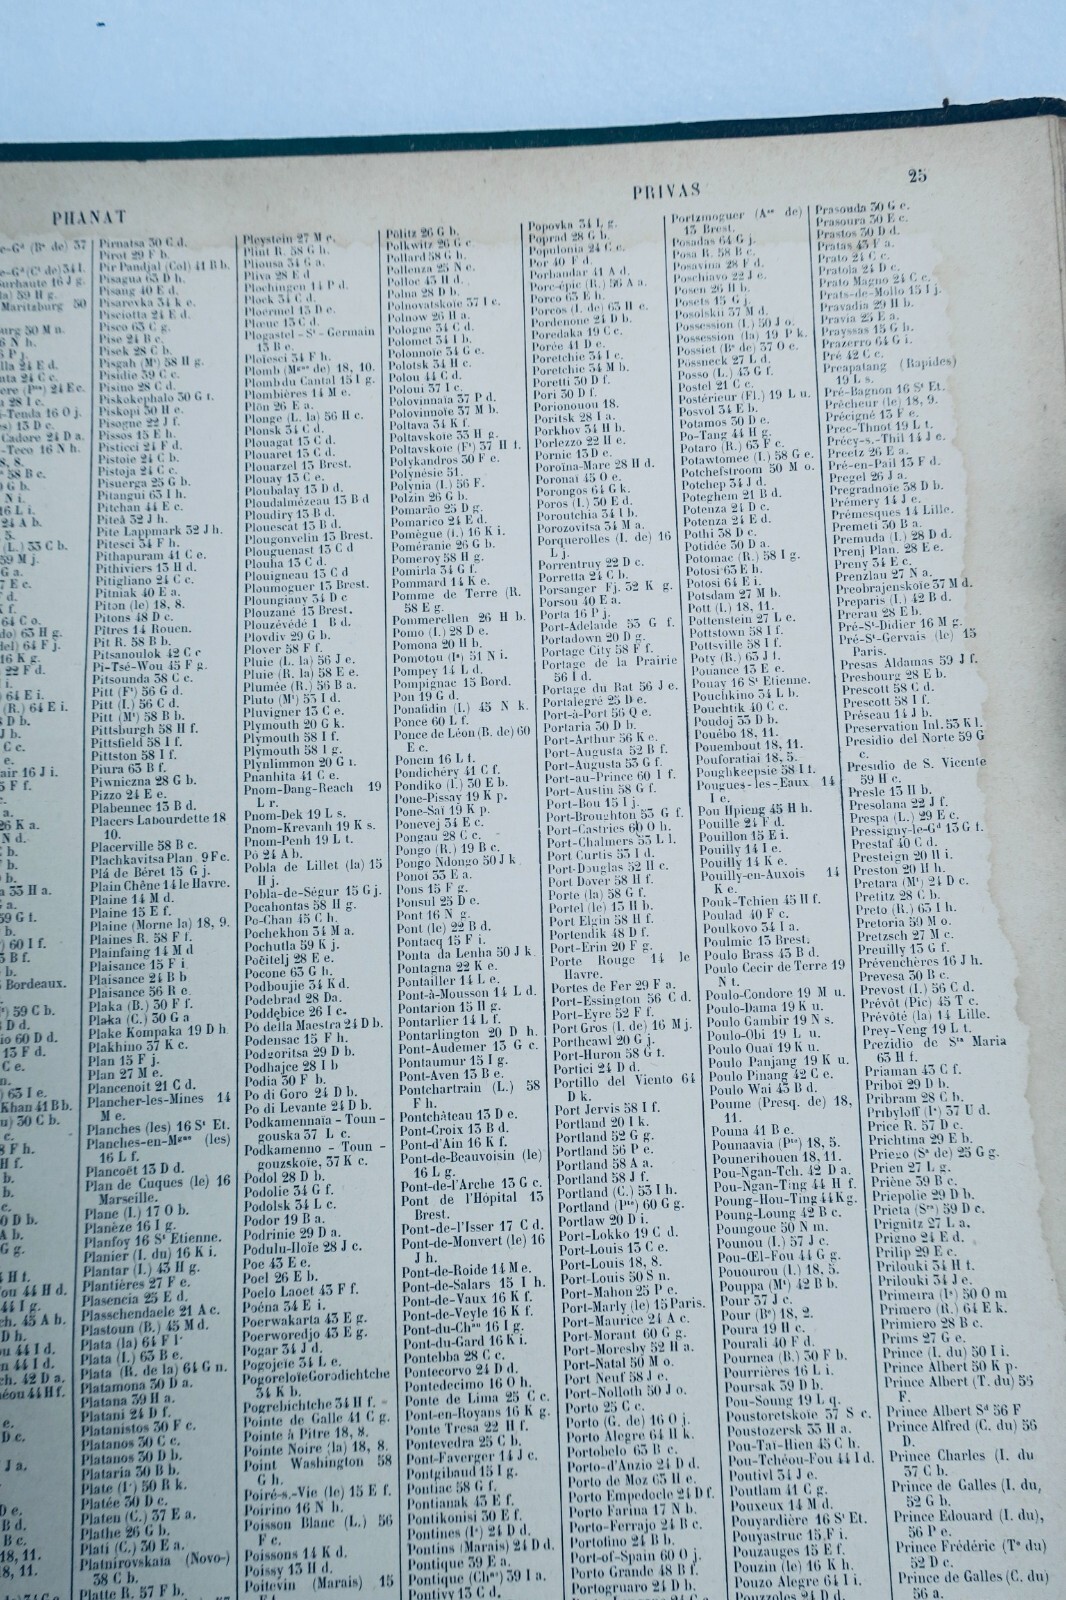 PHANAT
PRIVAS
25
Pirnatsa 30 C d.
Pirot 29 F b.
Pir Pandjal (Col) 41 B b.
Pisagua 63 D h.
Pisang 40 E d.
Pisarevka 34 k e.
Pisciotta 24 E d.
Pisco 63 C g.
Pise 24 B c.
Pisek 28 C b.
Pisgah (Mt) 58 H g.
Pisidie 39 C c.
Pisino 28 C d.
Piskokephalo 30 G i.
Piskopi 30 H e.
Pisogne 22 J f.
Pissos 15 E h.
Pisticci 24 F d.
Pistoie 24 C b.
Pistoja 24 C c.
Pisuerga 25 G b.
Pitangui 63 I h.
Pitchan 44 E c.
Piteå 32 J h.
Pite Lappmark 32 J h.
Pitesci 34 F h.
Pithapuram 41 C e.
Pithiviers 13 H d.
Pitigliano 24 C c.
Pitniak 40 E a.
Piton (le) 18, 8.
Pitons 48 D c.
Pîtres 14 Rouen.
Pit R. 58 B b.
Pitsanoulok 42 C c
Pi-Tsé-Wou 45 F g.
Pitsounda 38 C c.
Pitt (Ft) 56 G d.
Pitt (I.) 56 C d.
Pitt (Mt) 58 B b.
Pittsburgh 58 H f.
Pittsfield 58 I f.
Pittston 58 I f.
Piura 63 B f.
Piwniczna 28 G b.
Pizzo 24 E e.
Plabennec 13 B d.
Placers Labourdette 18
10.
Placerville 58 B c.
Plachkavitsa Plan. 9 F c.
Plá de Béret 15 G j.
Plain Chêne 14 le Havre.
Plaine 14 M d.
Plaine 15 E f.
Plaine (Morne la) 18, 9.
Plaines R. 58 F f.
Plainfaing 14 M d
Plaisance 15 F i.
Plaisance 24 B b
Plaisance 56 R e.
Plaka (B.) 30 F f.
Plaka (C.) 30 G a
Plake Kompaka 19 D h
Plakhino 37 K c.
Plan 15 F j.
Plan 27 M e.
Plancenoit 21 C d.
Plancher-les-Mines 14
M e.
Planches (les) 16 St Et.
Planches-en-Mgne (les)
16 L f.
Plancoët 13 D d.
Plan de Cuques (le) 16
Marseille.
Plane (I.) 17 O b.
Planèze 16 I g.
Planfoy 16 St Etienne.
Planier (I. du) 16 K i.
Plantar (I.) 43 H g.
Plantières 27 F e.
Plasencia 25 E d.
Plasschendaele 21 A c.
Plastoun (B.) 45 M d.
Plata (la) 64 F l.
Plata (I.) 63 B e.
Plata (R. de la) 64 G n.
Platamona 30 D a.
Platana 39 H a.
Platani 24 D f.
Platanistos 30 F c.
Platanos 30 C c.
Platanos 30 D b.
Plataria 30 B b.
Plate (Ie) 50 R k.
Platée 30 D c.
Platen (C.) 37 E a.
Plathe 26 G b.
Plati (C.) 30 E a.
Platnirovskaïa (Novo-)
38 C b.
Platte R. 57 F b.
Pleystein 27 M e.
Plint R. 58 G h.
Pliousa 34 G a.
Pliva 28 E d
Plochingen 14 P d.
Plock 34 C d.
Ploermel 13 D e.
Plœuc 13 C d.
Plogastel-St-Germain
13 B e.
Ploiesci 34 F h.
Plomb (Mgne de) 18, 10.
Plomb du Cantal 15 I g.
Plombières 14 M e.
Plön 26 E a.
Plonge (L. la) 56 H c.
Plonsk 34 C d.
Plouagat 13 C d.
Plouaret 13 C d.
Plouarzel 13 Brest.
Plouay 13 C e.
Ploubalay 13 D d.
Ploudalmézeau 13 B d
Ploudiry 13 B d.
Plouescat 13 B d.
Plougonvelin 13 Brest.
Plouguenast 13 C d
Plouha 13 C d.
Plouigneau 13 C d
Ploumoguer 13 Brest.
Ploungiany 34 D c
Plouzané 13 Brest.
Plouzévédé 1 B d.
Plovdiv 29 G b.
Plover 58 F f.
Pluie (L. la) 56 J e.
Pluie (R. la) 58 E e.
Plumée (R.) 56 B a.
Pluto (Mt) 53 I d.
Pluvigner 13 C e.
Plymouth 20 G k.
Plymouth 58 I f.
Plymouth 58 I g.
Plynlimmon 20 G i.
Pnanhita 41 C e.
Pnom-Dang-Reach 19
L r.
Pnom-Dek 19 L s.
Pnom-Krevanh 19 K s.
Pnom-Penh 19 L t.
Pô 24 A b.
Pobla de Lillet (la) 15
H j.
Pobla-de-Ségur 15 G j.
Pocahontas 58 H g.
Po-Chan 45 C h.
Pochekhon 34 M a.
Pochutla 59 K j.
Počitelj 28 E e.
Pocone 63 G h.
Podboujie 34 K d.
Podebrad 28 D a.
Poddębice 26 I c.
Pó della Maestra 24 D b.
Podensac 15 F h.
Podgoritsa 29 D b.
Podhajce 28 I b
Podia 30 F b.
Po di Goro 24 D b.
Po di Levante 24 D b.
Podkamennaïa-Toun-
gouska 37 L c.
Podkamenno-Toun-
gouzskoïe, 37 K c.
Podol 28 D b.
Podolie 34 G f.
Podolsk 34 L c.
Podor 19 B a.
Podrinie 29 D a.
Podulu-Iloïe 28 J c.
Poe 43 E e.
Poel 26 E b.
Poelo Laoet 43 F f.
Poéna 34 E i.
Poerwakarta 43 E g.
Poerworedjo 43 E g.
Pogar 34 J d.
Pogojeïe 34 L e.
Pogoreloïe Gorodichtche
34 K b.
Pogrebichtche 34 H f.
Pointe de Galle 41 C g.
Pointe à Pitre 18, 8.
Pointe Noire (la) 18, 8.
Point Washington 58
G h.
Poiré-s.-Vie (le) 15 E f.
Poirino 16 N h.
Poisson Blanc (L.) 56
F c.
Poissons 14 K d.
Poissy 13 H d.
Poitevin (Marais) 15
Pölitz 26 G b.
Polkwitz 26 G c.
Pollard 58 G h.
Pollenza 25 N e.
Polloc 43 H d.
Polna 28 D b.
Polnovatskoïe 37 I c.
Polnow 26 H a.
Pologne 34 C d.
Polomet 34 I b.
Polonnoïe 34 G e.
Polotsk 34 H c.
Polou 44 C d.
Poloui 37 I c.
Polovinnaïa 37 P d.
Polovinnoïe 37 M b.
Poltava 34 K f.
Poltavskoïe 33 H g.
Poltavskoïe (Ft) 37 H f.
Polykandros 30 F e.
Polynésie 51.
Polynia (I.) 56 F.
Polzin 26 G b.
Pomarão 25 D g.
Pomarico 24 E d.
Pomègue (I.) 16 K i
Poméranie 26 G b.
Pomeroy 58 H g.
Pomirla 34 G f.
Pommard 14 K e.
Pomme de Terre (R.
58 E g.
Pommerellen 26 H b.
Pomo (I.) 28 D e.
Pomona 20 H b.
Pomotou (Is) 51 N i.
Pompey 14 L d.
Pompignac 15 Bord.
Pon 19 G d.
Ponafidin (I.) 45 N k.
Ponce 60 L f.
Ponce de Léon (B. de) 60
E c.
Poncin 16 L f.
Pondichéry 41 C f.
Pondiko (I.) 30 E b.
Pone-Pissay 19 K p.
Pone-Saï 19 K p.
Ponevej 34 E c.
Pongau 28 C c.
Pongo (R.) 19 B c.
Pongo Ndongo 50 J k
Ponoï 33 E a.
Pons 15 F g.
Ponsul 25 D e.
Pont 16 N g.
Pont (le) 22 B d.
Pontacq 15 F i.
Ponta da Lenha 50 J k
Pontagna 22 K e.
Pontailler 14 L e.
Pont-à-Mousson 14 L d.
Pontarion 15 H g.
Pontarlier 14 L f.
Pontarlington 20 D h.
Pont-Audemer 13 G c.
Pontaumur 15 I g.
Pont-Aven 13 B e.
Pontchartrain (L.) 58
F h.
Pontchâteau 13 D e.
Pont-Croix 13 B d.
Pont-d'Ain 16 K f.
Pont-de-Beauvoisin (le)
16 L g.
Pont-de-l'Arche 13 G c.
Pont de l'Hôpital 13
Brest.
Pont-de-l'Isser 17 C d.
Pont-de-Monvert (le) 16
J h.
Pont-de-Roide 14 M e.
Pont-de-Salars 15 I h.
Pont-de-Vaux 16 K f.
Pont-de-Veyle 16 K f.
Pont-du-Chau 16 I g.
Pont-du-Gard 16 K i.
Pontebba 28 C c.
Pontecorvo 24 D d.
Pontedecimo 16 O h.
Ponte de Lima 25 C c.
Pont-en-Royans 16 K g.
Ponte Tresa 22 H f.
Pontevedra 25 C b.
Pont-Faverger 14 J c.
Pontgibaud 15 I g.
Pontiac 58 G f.
Pontianak 43 E f.
Pontikonisi 30 E f.
Pontines (Is) 24 D d.
Pontins (Marais) 24 D d.
Pontique 39 E a.
Pontique (Chne) 39 I a.
Pontivy 13 C d.
Popovka 34 L g.
Poprad 28 G b.
Populonia 24 C c.
Por 40 F d.
Porbandar 41 A d.
Porc-épic (R.) 56 A a.
Porco 63 E h.
Porcos (I. de) 63 H e.
Pordenone 24 D b.
Poredaka 19 C c.
Porée 41 D e.
Poretchie 34 I c.
Poretchie 34 M b.
Poretti 30 D f.
Pori 30 D f.
Porionouou 18.
Poritsk 28 I a.
Porkhov 34 H b.
Porlezzo 22 H e.
Pornic 13 D e.
Poroïna-Mare 28 H d.
Poronaï 45 O e.
Porongos 64 G k.
Poros (I.) 30 E d.
Poroutchia 34 I b.
Porozovitsa 34 M a.
Porquerolles (I. de) 16
L j.
Porrentruy 22 D c.
Porretta 24 C b.
Porsanger Fj. 32 K g.
Porsou 40 E a.
Porta 16 P j.
Port-Adelaide 53 G f.
Portadown 20 D g.
Portage City 58 F f.
Portage de la Prairie
56 I d.
Portage du Rat 56 J e.
Portalegré 25 D e.
Port-à-Port 56 Q e.
Portaria 30 D b.
Port-Arthur 56 K e.
Port-Augusta 52 B f.
Port-Augusta 53 G f.
Port-au-Prince 60 I f.
Port-Austin 58 G f.
Port-Bou 15 I j.
Port-Broughton 53 G f.
Port-Castries 60 O h.
Port-Chalmers 53 L l.
Port Curtis 53 I d.
Port-Douglas 52 H c.
Port Dover 58 H f.
Porte (la) 58 G f.
Portel (le) 13 H b.
Port Elgin 58 H f.
Portendik 48 D f.
Port-Erin 20 F g.
Porte Rouge 14 le
Havre.
Portes de Fer 29 F a.
Port-Essington 56 C d.
Port-Eyre 52 F f.
Port Gros (I. de) 16 M j.
Porthcawl 20 G j.
Port-Huron 58 G f.
Portici 24 D d.
Portillo del Viento 64
D k.
Port Jervis 58 I f.
Portland 20 I k.
Portland 52 G g.
Portland 56 P e.
Portland 58 A a.
Portland 58 J f.
Portland (C.) 53 I h.
Portland (Pte) 60 G g.
Portlaw 20 D i.
Port-Lokko 19 C d.
Port-Louis 13 C e.
Port-Louis 18, 8.
Port-Louis 50 S n.
Port-Mahon 25 P e.
Port-Marly (le) 15 Paris.
Port-Maurice 24 A c.
Port-Morant 60 G g.
Port-Moresby 52 H a.
Port-Natal 50 M o.
Port Neuf 58 J e.
Port-Nolloth 50 J o.
Porto 25 C c.
Porto (G. de) 16 O j.
Porto Alegre 64 H k.
Portobelo 63 B c.
Porto-d'Anzio 24 D d.
Porto de Moz 63 H e.
Porto Empedocle 24 D f.
Porto Farina 17 N b.
Porto-Ferrajo 24 B c.
Portofino 24 B b.
Port-of-Spain 60 O j.
Porto Grande 48 B f.
Portogruaro 24 D b.
Portzmoguer (Anse de)
13 Brest.
Posadas 64 G j.
Posa R. 58 B c.
Posavina 28 F d.
Poschiavo 22 J e.
Posen 26 H b.
Posets 15 G j.
Posolskii 37 M d.
Possession (I.) 50 J o.
Possession (la) 19 P k.
Possiet (Be de) 37 O e.
Pössneck 27 L d.
Posso (L.) 43 G f.
Postel 21 C c.
Postérieur (Fl.) 19 L u.
Posvol 34 E b.
Potamos 30 D e.
Po-Tang 44 H g.
Potaro (R.) 63 F c.
Potawtomee (I.) 58 G e.
Potchefstroom 50 M o.
Potchep 34 J d.
Poteghem 21 B d.
Potenza 24 D c.
Potenza 24 E d.
Pothi 38 D c.
Potidée 30 D a.
Potomac (R.) 58 I g.
Potosi 63 E h.
Potosi 64 E i.
Potsdam 27 M b.
Pott (I.) 18, 11.
Pottenstein 27 L e.
Pottstown 58 I f.
Pottsville 58 I f.
Poty (R.) 63 J f.
Pouancé 13 E e.
Pouay 16 St Etienne.
Pouchkino 34 L b.
Pouchtik 40 C c.
Poudoj 33 D b.
Pouébo 18, 11.
Pouembout 18, 11.
Pouforatiai 18, 5.
Poughkeepsie 58 I f.
Pougues-les-Eaux 14
I e.
Pou Hpieng 45 H h.
Pouille 24 F d.
Pouillon 15 E i.
Pouilly 14 I e.
Pouilly 14 K e.
Pouilly-en-Auxois 14
K e.
Pouk-Tchien 45 H f.
Poulad 40 F c.
Poulkovo 34 I a.
Poulmic 13 Brest.
Poulo Brass 43 B d.
Poulo Cecir de Terre 19
N t.
Poulo-Condore 19 M u.
Poulo-Dama 19 K u.
Poulo Gambir 19 N s.
Poulo-Obi 19 L u.
Poulo Ouaï 19 K u.
Poulo Panjang 19 K u.
Poulo Pinang 42 C e.
Poulo Wai 43 B d.
Poume (Presq. de) 18,
11.
Pouna 41 B e.
Pounaavia (Pte) 18, 5.
Pounerihouen 18, 11.
Pou-Ngan-Tch. 42 D a.
Pou-Ngan-Ting 44 H f.
Poung-Hou-Ting 44 K g.
Poung-Loung 42 B c.
Poungoue 50 N m.
Pounou (I.) 57 J c.
Pou-Œl-Fou 44 G g.
Pounourou (I.) 18, 5.
Pouppa (Mt) 42 B b.
Pour 37 J c.
Pour (Be) 18, 2.
Poura 19 H c.
Pourali 40 F d.
Pournea (B.) 30 F b.
Pourrières 16 L i.
Poursak 39 D b.
Pou-Soung 19 L q.
Poustoretskoïe 37 S c.
Poustozersk 33 H a.
Pou-Taï-Hien 45 C h.
Pou-Tchéou-Fou 44 I d.
Poutivl 34 J e.
Poutlam 41 C g.
Pouxeux 14 M d.
Pouyardière 16 St Et.
Pouyastruc 15 F i.
Pouzauges 15 E f.
Pouzin (le) 16 K h.
Pouzo Alegre 64 I i.
Prasonda 30 G e.
Prasoura 30 E c.
Prastos 30 D d.
Pratas 43 F a.
Prato 24 C c.
Pratola 24 D c.
Prato Magno 24 C c.
Prats-de-Mollo 15 I j.
Pravadia 29 H b.
Pravia 25 E a.
Prayssas 15 G h.
Prazerro 64 G i.
Pré 42 C c.
Preapatang (Rapides)
19 L s.
Pré-Bagnon 16 St Et.
Prêcheur (le) 18, 9.
Précigné 13 F e.
Prec-Thnot 19 L t.
Précy-s.-Thil 14 J e.
Preetz 26 E a.
Pré-en-Pail 13 F d.
Pregel 26 J a.
Pregradnoïe 38 D b.
Prémery 14 J e.
Prémesques 14 Lille.
Premeti 30 B a.
Premuda (I.) 28 D d.
Prenj Plan. 28 E e.
Preny 34 E c.
Prenzlau 27 N a.
Preobrajenskoïe 37 M d.
Preparis (I.) 42 B d.
Prerau 28 E b.
Pré-St-Didier 16 M g.
Pré-St-Gervais (le) 15
Paris.
Presas Aldamas 59 J f.
Presbourg 28 E b.
Prescott 58 C d.
Prescott 58 I f.
Préseau 14 J b.
Preservation Inl. 53 K l.
Presidio del Norte 59 G
c.
Presidio de S. Vicente
59 H c.
Presle 13 H b.
Presolana 22 J f.
Prespa (L.) 29 E c.
Pressigny-le-Gd 13 G f.
Prestaf 40 C d.
Presteign 20 H i.
Preston 20 H h.
Pretara (Mt) 24 D c.
Pretitz 28 C b.
Preto (R.) 63 I h.
Pretoria 59 M o.
Pretzsch 27 M c.
Preuilly 13 G f.
Prévenchères 16 J h.
Prevesa 30 B c.
Prevost (I.) 56 C d.
Prévôt (Pic) 45 T c.
Prévôté (la) 14 Lille.
Prey-Veng 19 L t.
Prezidio de Sta Maria
63 H f.
Priaman 43 C f.
Priboi 29 D b.
Pribram 28 C b.
Pribyloff (Is) 37 U d.
Price R. 57 D c.
Prichtina 29 E b.
Priego (Sa de) 25 G g.
Prien 27 L g.
Priène 39 B c.
Priepolie 29 D b.
Prieta (Sra) 59 D c.
Prignitz 27 L a.
Prigno 24 E d.
Prilip 29 E c.
Prilouki 34 H f.
Prilouki 34 J e.
Primeira (Is) 50 O m
Primero (R.) 64 E k.
Primiero 28 B c.
Prims 27 G e.
Prince (I.) 50 I i.
Prince Albert 50 K p.
Prince Albert (T. du) 56
F.
Prince Albert Sd 56 F
Prince Alfred (C. du) 56
D.
Prince Charles (I. du
37 C b.
Prince de Galles (I. du,
52 G b.
Prince Edouard (I. du),
56 P e.
Prince Frédéric (Te du)
52 D c.
Prince de Galles (C. du)
56 a.